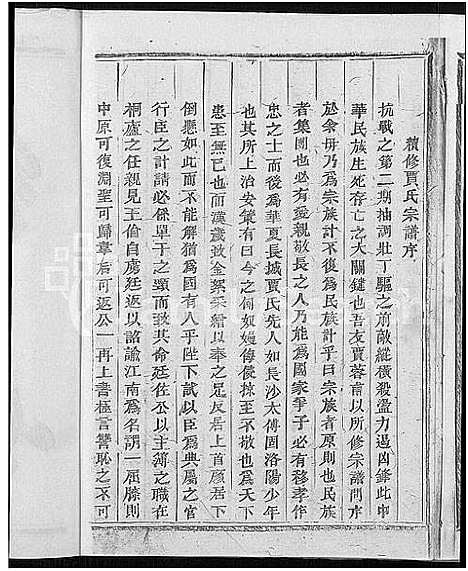 續修賈氏宗譜序
抗戰之第二期抽調壯丁驅之前敵縱橫殺盪力遏凶鋒此中
華民族生死存亡之大關鍵也吾友賈蓉南以所修宗譜問序
於余毋乃爲宗族計不復爲民族計乎曰宗族者原則也民族
者集團也必有愛親敬長之人乃能爲國家爭子必有移孝作
忠之士而後爲華夏長城賈氏先人如長沙太傅固洛陽少年
也其所上治安策有曰今之匈奴嫚侮侵掠至不敬也爲天下
患至無已也而漢歲致金絮采繒以奉之足反居上首顧居下
倒懸如此而不能解猶爲國有人乎陛下試以臣爲典屬之官
行臣之計請必係單于之頸而致其命廷佐公以主簿之職在
桐廬之任親見王倫自虜廷返以詔諭江南爲名謂一屈膝則
中原可復淵聖可歸韋后可返公一再上書極言讐恥之不可